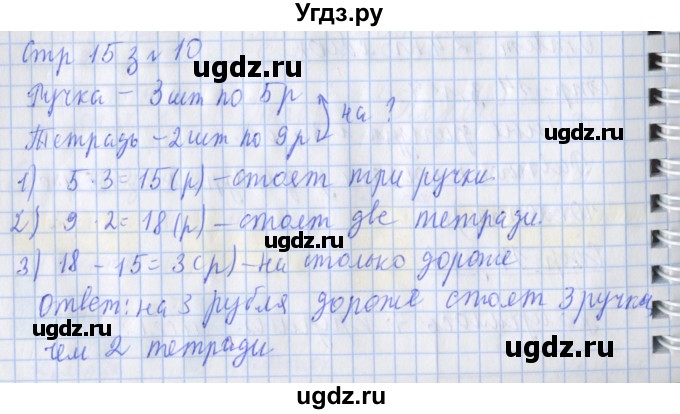 Угдз.ру
Стр 15 з № 10
ugdz.ru
ugdz.ru
Ручка – 3 шт по 5 р
Тетрадь – 2 шт по 9 р
на ?
1) 5 · 3 = 15 (р) – стоят три ручки.
2) 9 · 2 = 18 (р) – стоят две тетради.
ugdz.ru
ugdz.ru
3) 18 – 15 = 3 (р) – на столько дороже
Ответ: на 3 рубля дороже стоят 3 ручки,
чем 2 тетради
ugdz.ru
ugdz.ru